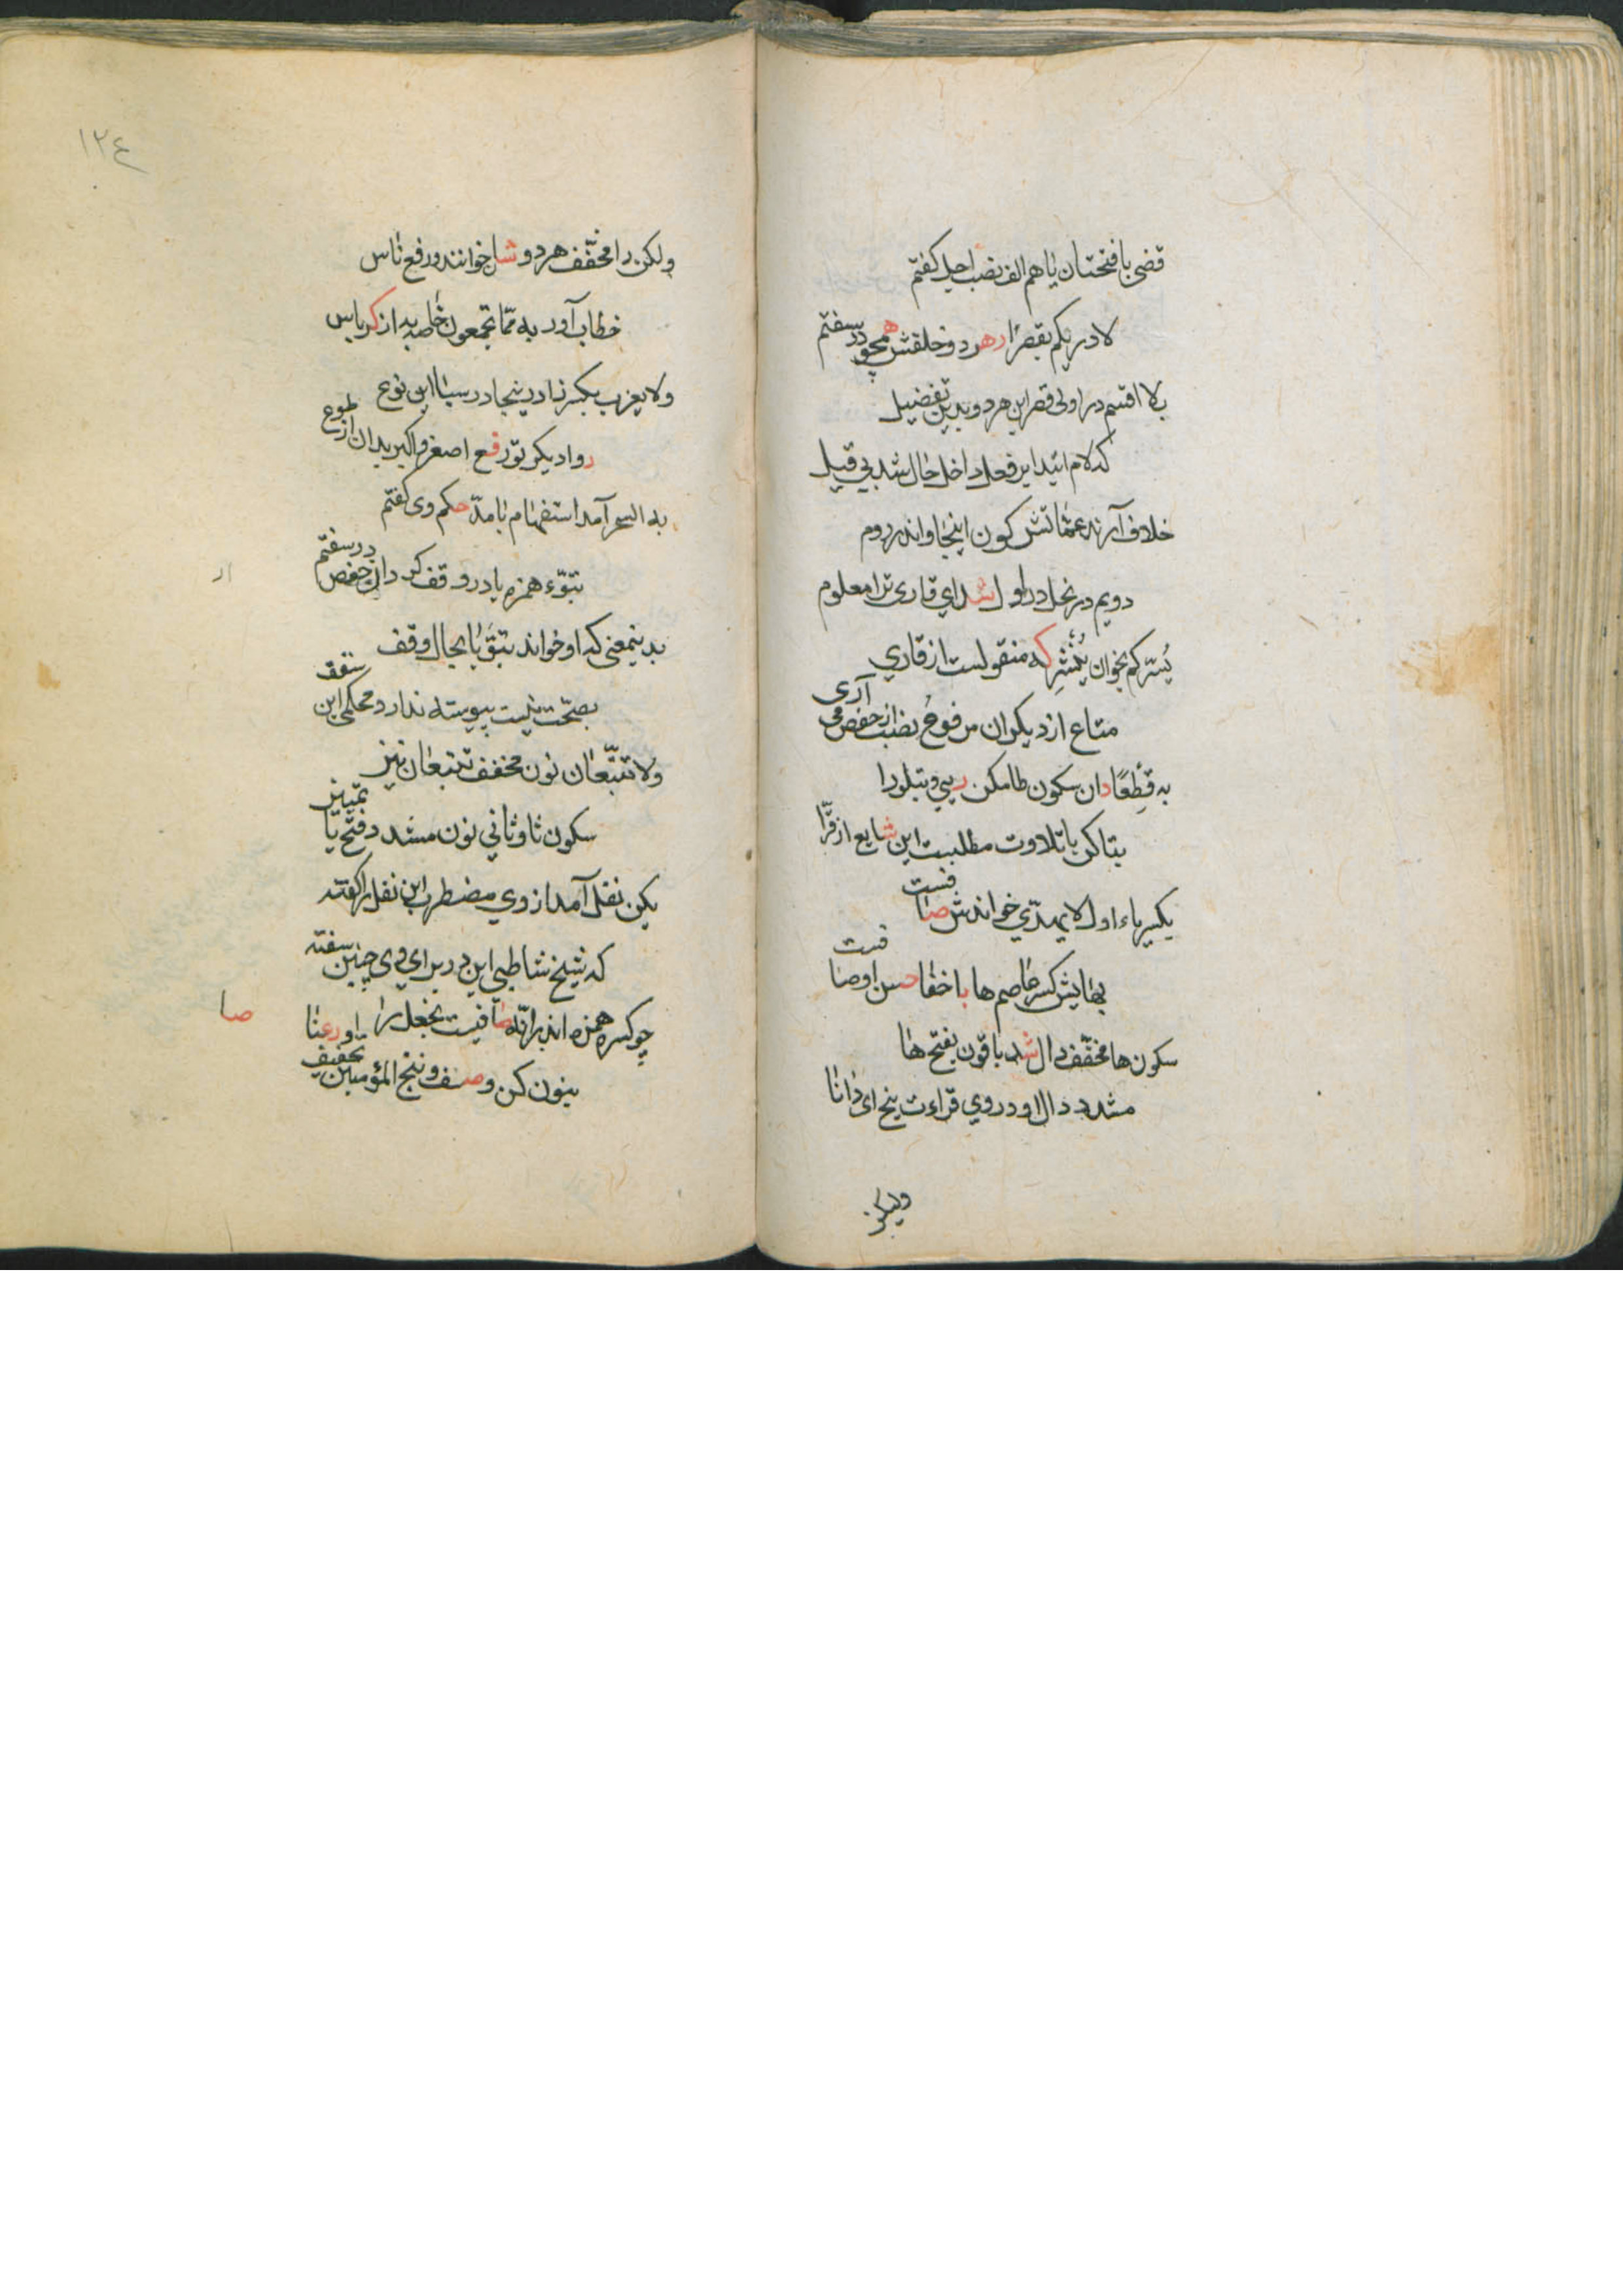 قضی با فتحتان یا هم الف نصب اجل کفتم
لادریکم بقصر ار هر دو خلقش همچو در سفتم
بلا اقسم در اولی قصر این هر دو بدین تفضیل
که لام ائید ابر فعل داخل حال شد بی قیل
خلاف آرند عثمانش کون اینجا و اندر روم
دویم در نحل در اول شد ای قاری ترا معلوم
یسیرکم بخوان ینشر که منقولست از قاری
متاع از دیکران مرفوع بنصب از حفص می آری
به قطعا دان سکون طا مکن ریبی و تبلو را
بتا کن با تلاوت مطلبست این شایع از قرا
بکسر یاء اول لا یهدی خواندش صا فیست
بهایش کسر عاصم ها با اخفا حسن او صا فیست
سکون ها مخفف دال شد باقون بفتح ها
مشدد دال او در وی قراءت پنج ای دانا
ولیکن
١٢٤
ولکن را مخفف هر دو شا خوانند و رفع ناس
خطاب آور به مما تجمعون خاصه بد از کریاس
ولا یعزب بکسر زا در ینجا در سبا این نوع
روا دیکر تو رفع اصغر و اکبر بدان از طوع
به السحر آمد استفهام با مد حکم وی کفتم
تبوء همزه یا در وقف کرد ان حفص در سفتم
بدینمعنی که او خواند تبو یا بحال وقف
بصحت نیست پیوسته ندارد محکمی این سقف
ولا تتبعان نون مخفف تتبعان نیز
سکون تا و ثانی نون مشدد فتح با تمییز
یکن نقل آمد از وی مضطرب این نقل را کفته
که شیخ شاطبی این در برای وی چنین سفته
چو کسره همزه اندر انه شا فیست نجعل را
بنون کن وصف و ننج المؤمنین تخفیف او رعنا
صا